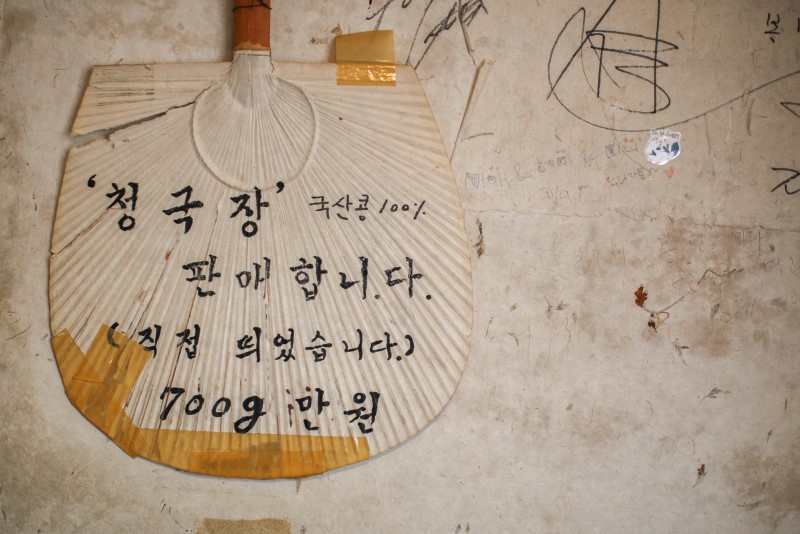 '청국장' 국산콩 100%
판매합니다.
(직접 띄었습니다.)
700g 만원